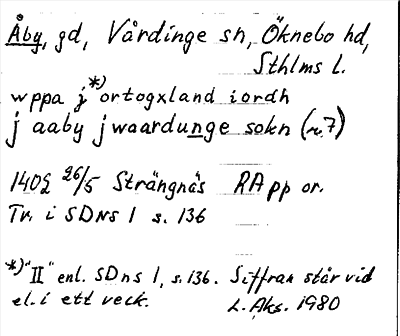 Åby, gd, Vårdinge sn, Öknebo hd,
Sthlms l.
wppa j *) ortogxland i ordh
j aaby j waardunge sokn (r.7)
1402 26/5 Strängnäs RA pp or.
Tr. i SDns 1 s. 136
*) "II" enl. SDns 1, s. 136. Siffran står vid
el. i ett veck. L. Aks. 1980